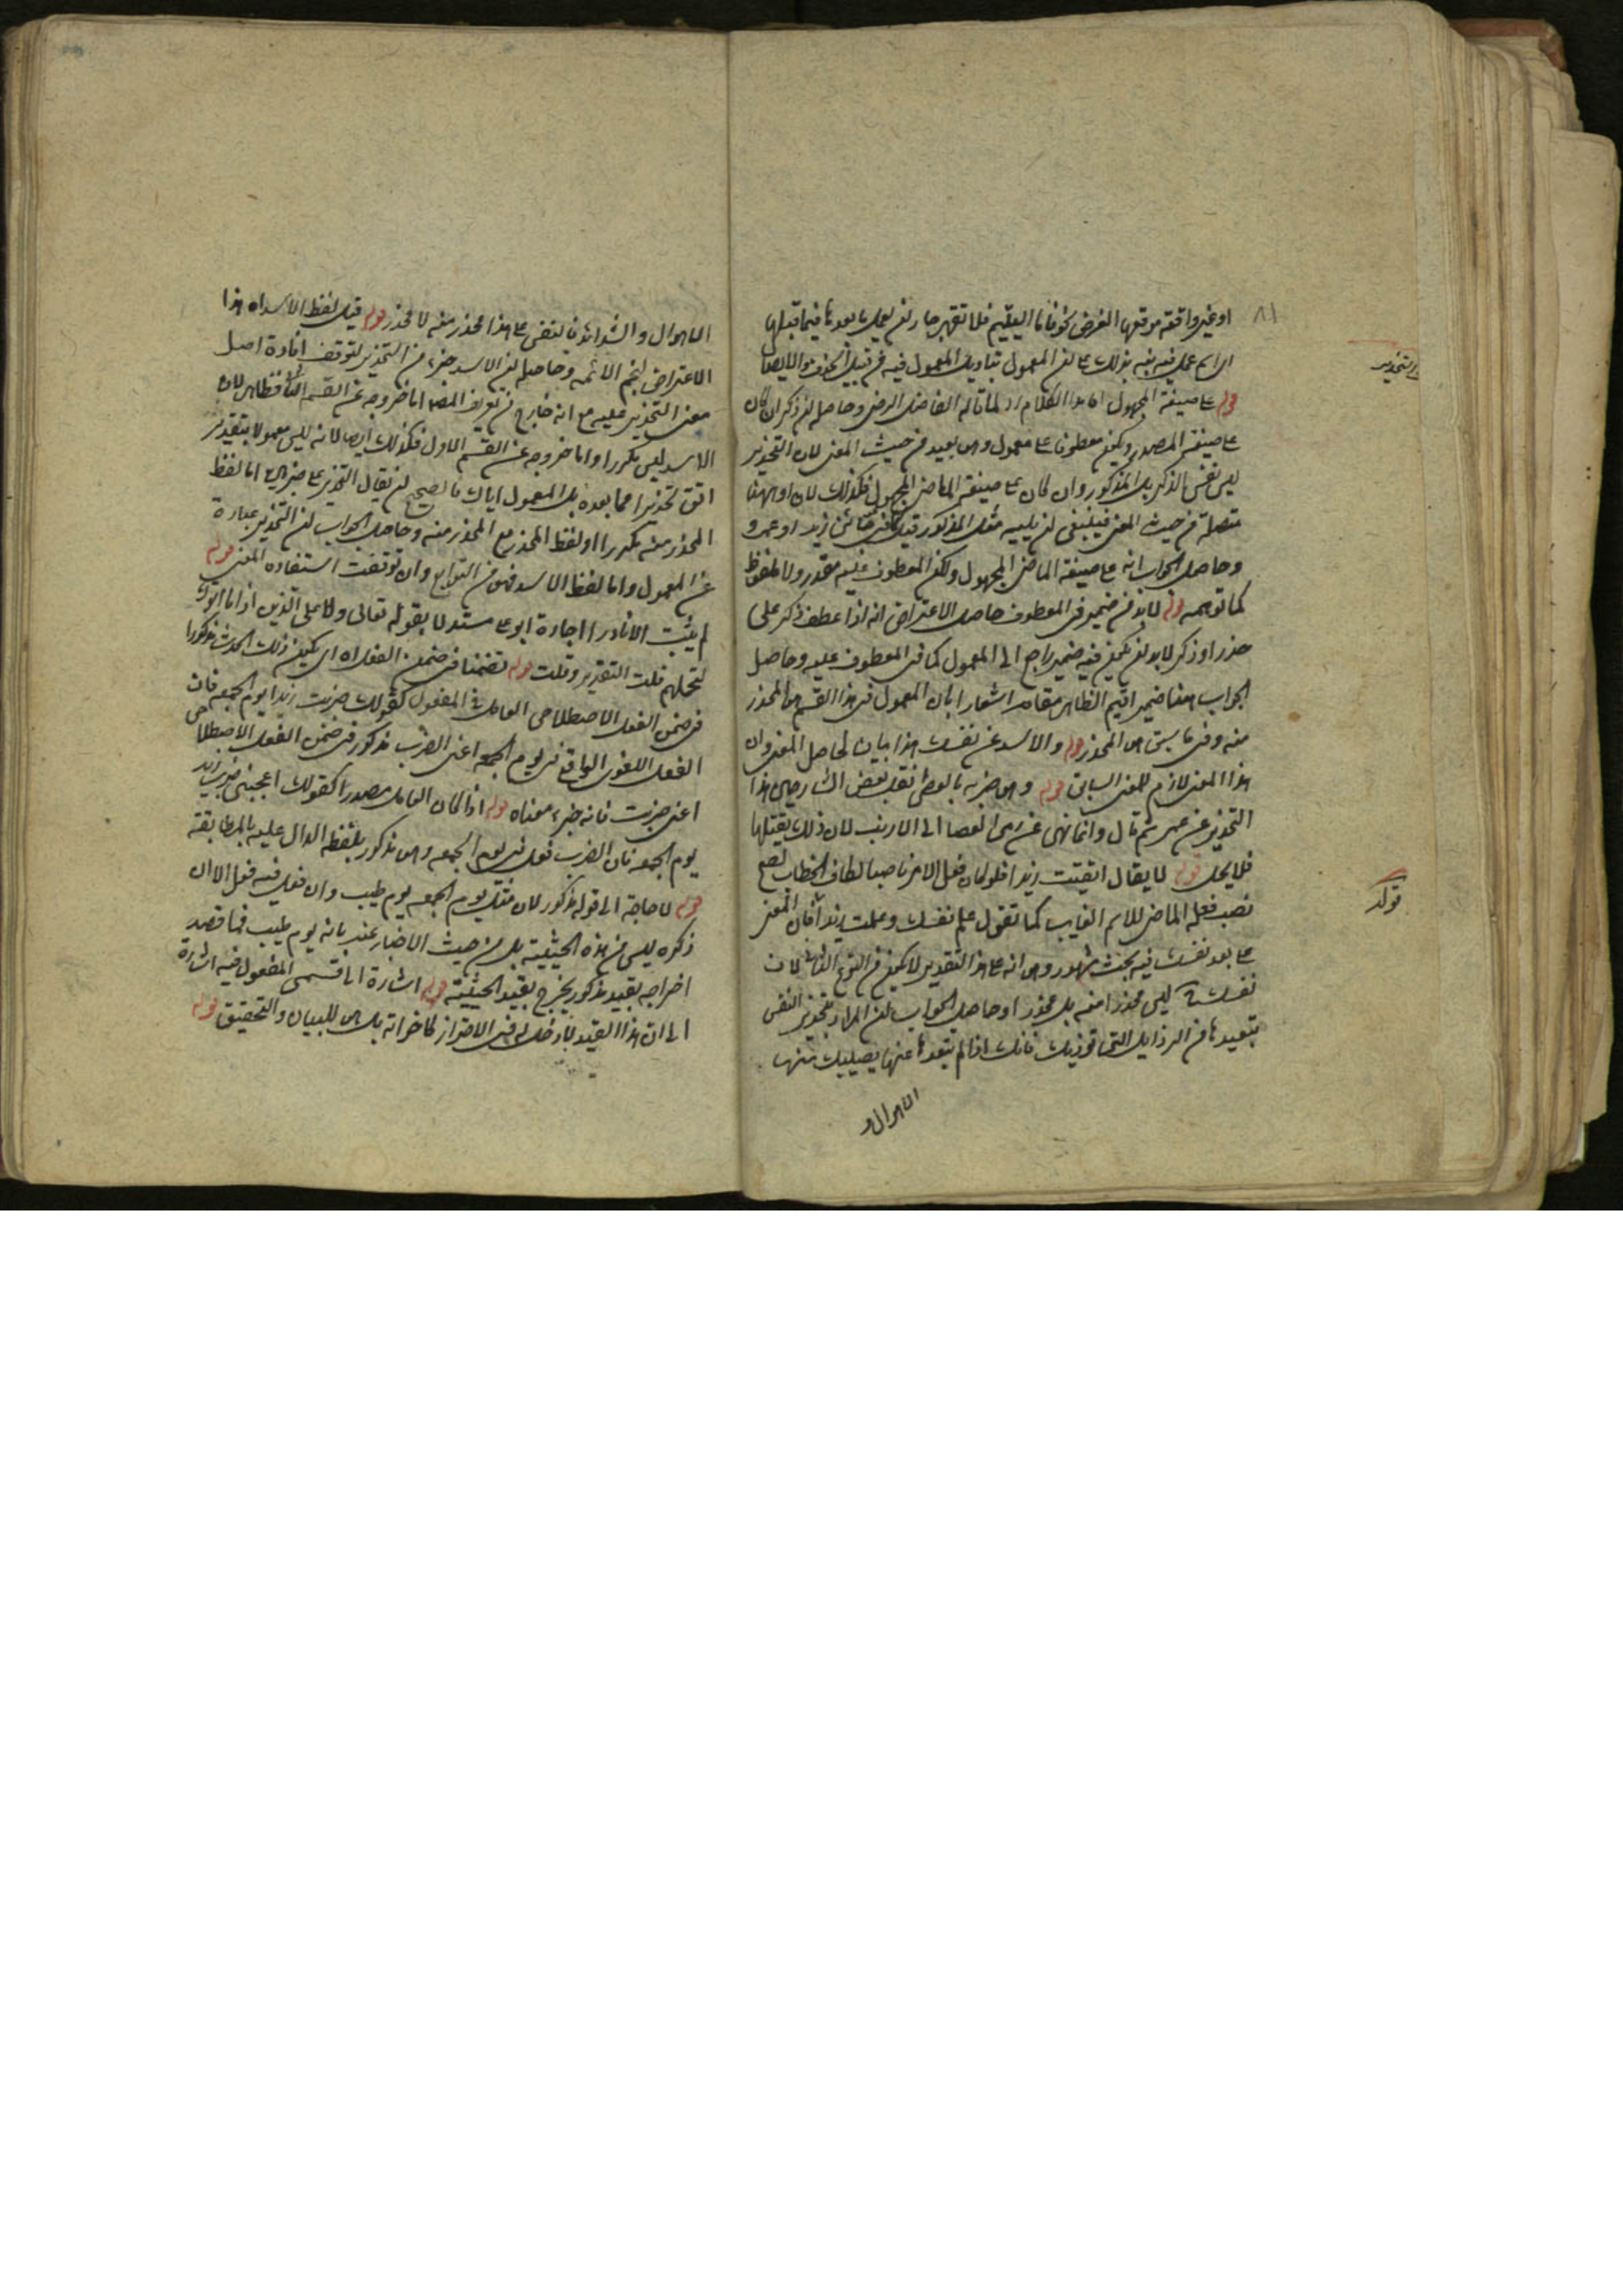 ٨١
او غير واقعة موقعها الغرض نحو فاما اليتيم فلا تقهر جاز ان يعمل ما بعدها فيما قبلها
اي اسم عمل فيه نبه بذلك على ان المعمول بتأويل المعمول فيه من قبيل الحذف والايصال
التحذير
قوله على صيغة المجهول هذا الكلام رد لما قاله الفاضل الرضي وحاصله ان ذكر ان كان
على صيغة المصدر ويكون معطوفا على معمول وهو بعيد من حيث المعنى لان التحذير
ليس نفس الذكر بل المذكور وان كان على صيغة الماضي المجهول فكذلك لان او ههنا
متصلة من حيث المعنى فينبغي ان يليه مثل المذكور قبل جائني زيد او عمرو
وحاصل الجواب انه على صيغة الماضي المجهول ولكن المعطوف عليه مقدر ولا ملفوظ
كما توهمه قوله لا بد من ضمير في المعطوف حاصل الاعتراض انه اذا عطف ذكر على
حذر او ذكر لا بد ان يكون فيه ضمير راجع الى المعمول كما في المعطوف عليه وحاصل
الجواب ههنا ضمير اقيم الظاهر مقامه اشعارا بان المعمول في هذا القسم هو المحذر
منه وفي ما سبق هو المحذر قوله والاسد عن نفسك هذا بيان لحاصل المعنى وان
هذا المعنى لازم للمعنى السابق قوله وهو ضربه بالعصا نقل بعض الشارحين هذا
التحذير عن عمر ثم قال وانما نهى عن رمي العصا الى الارنب لان ذلك يقتلها
فلا يحل قوله لا يقال اتقيت زيدا فلو كان فعل الامر ناصبا لكاف الخطاب لصح
قوله
نصب فعله الماضي للاسم الغايب كما تقول علم نفسك وعلمت زيدا فان المعنى
على بعد نفسك فيه بحث مشهور وهو انه على هذا التقدير لا يكون من النوع الثاني لان
نفسك ليس محذرا منه بل محذرا وحاصل الجواب ان المراد بتحذير النفس
تبعيدها من الرذايل التي توذيك فانك اذا لم تبعدها عنها يصيبك منها
الاهوال و
الاهوال والشدائد فالنفس على هذا محذر منه لا محذر قوله قيل لفظ الاسد اه هذا
الاعتراض لنجم الائمه وحاصله ان الاسد جزء من التحذير لتوقف افادة اصل
معنى التحذير عليه مع انه خارج من تعريف المص اما خروجه عن القسم الثاني فظاهر لان
الاسد ليس مكررا واما خروجه عن القسم الاول فكذلك ايضا لانه ليس معمولا بتقدير
اتق تحذيرا مما بعده بل المعمول اياك فالصحيح ان يقال التحذير على ضربين اما لفظ
المحذر منه مكررا او لفظ المحذر مع المحذر منه وحاصل الجواب ان التحذير عبارة
عن المعمول واما لفظ الاسد فهو من التوابع وان توقفت استفاده المعنى قوله
لم يثبت الا نادرا اجازه ابو على مستدلا بقوله تعالى ولا على الذين اذا ما اتوك
لتحملهم قلت التقدير وقلت قوله تضمنا في ضمن الفعل اه اي يكون ذلك الحدث مذكورا
في ضمن الفعل الاصطلاحي العامل في المفعول كقولك ضربت زيدا يوم الجمعه فان
الفعل اللغوي الواقع في يوم الجمعه اعني الضرب مذكور في ضمن الفعل الاصطلاحي
اعني ضربت فانه جزء معناه قوله اذا كان العامل مصدرا كقولك اعجبني ضرب زيد
يوم الجمعه فان الضرب فعل في يوم الجمعه وهو مذكور بلفظه الدال عليه بالمطابقه
قوله لا حاجة الى قوله مذكور لان مثل يوم الجمعه يوم طيب وان فعل فيه فعل الا ان
ذكره ليس من هذه الحيثية بل من حيث الاخبار عنه بانه يوم طيب فما قصد
اخراجه بقيد مذكور يخرج بقيد الحيثية قوله اشارة الى قسمى المفعول فيه اشارة
الى ان هذا القيد لا دخل له في الاحتراز كاخراته بل هو للبيان والتحقيق قوله